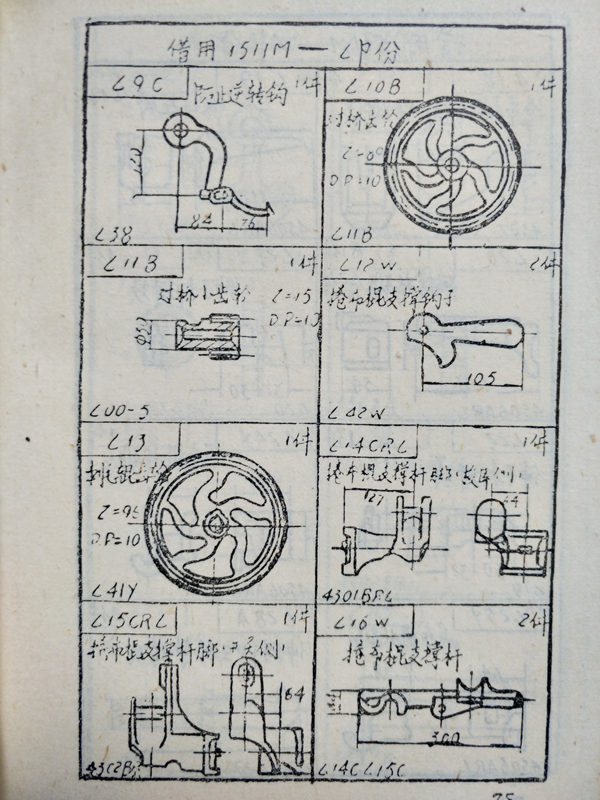 借用1511M—L部份
L9C
阻止逆转钩 1件
120
82 76
L38
L10B 1件
过桥齿轮
DP=10
L11B
L11B 1件
过桥小齿轮 Z=15
DP=10
L00-5
L12W 2件
捲布辊支撑钩子
105
L42W
L13 1件
Z=95
DP=10
L41Y
L14CRL 1件
捲布辊支撑杆脚
127
44
4301BRL
L15CRL 1件
捲布辊支撑杆脚
64
L16W 2件
捲布辊支撑杆
300
L14C L15C
75